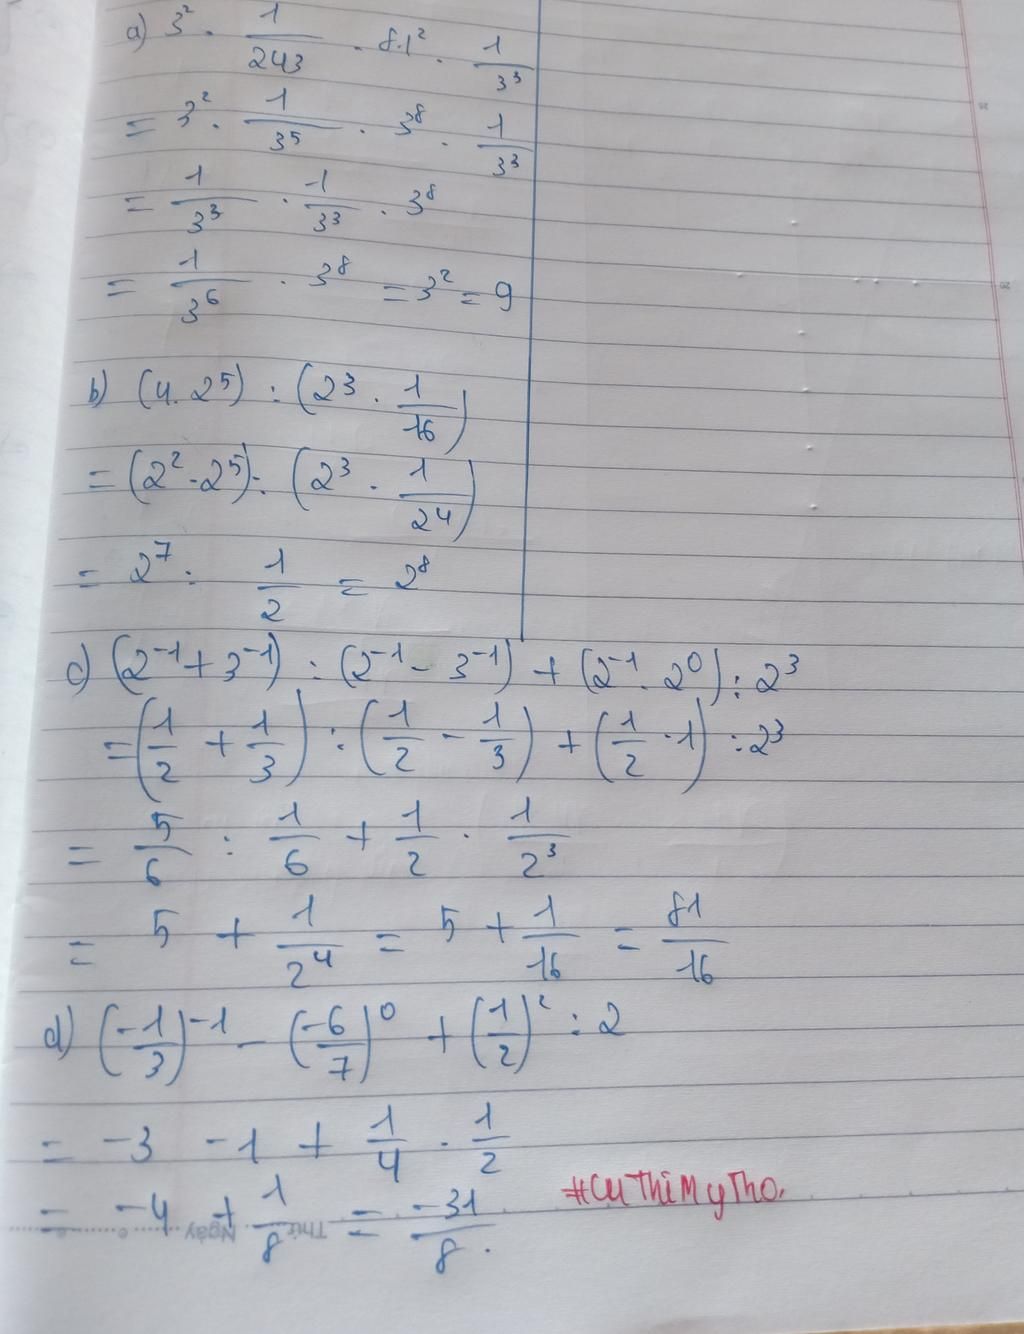 a) 3² . 1/243 . 81² . 1/3³
= 3² . 1/3⁵ . 3⁸ . 1/3³
= 1/3³ . 1/3³ . 3⁸
= 1/3⁶ . 3⁸ = 3² = 9
b) (4.2⁵) : (2³ . 1/16)
= (2².2⁵) : (2³ . 1/2⁴)
= 2⁷ : 1/2 = 2⁸
c) (2⁻¹ + 3⁻¹) : (2⁻¹ − 3⁻¹) + (2⁻¹ . 2⁰) : 2³
= (1/2 + 1/3) : (1/2 − 1/3) + (1/2 . 1) : 2³
= 5/6 : 1/6 + 1/2 . 1/2³
= 5 + 1/2⁴ = 5 + 1/16 = 81/16
d) (-1/3)⁻¹ − (-6/7)⁰ + (1/2)² : 2
= -3 -1 + 1/4 . 1/2
#CuThiMyTho.
= -4 + 1/8 = -31/8 .
Thứ Ngày